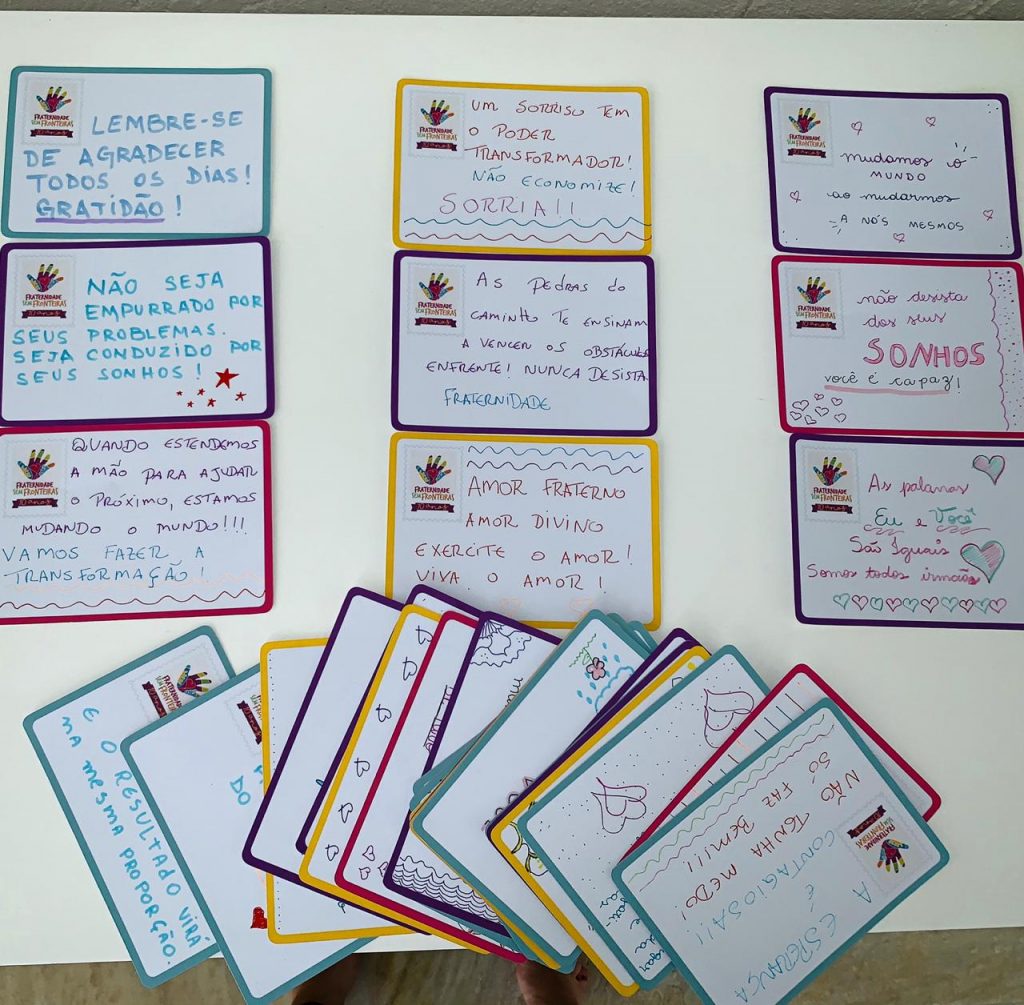 FRATERNIDADE
SEM FRONTEIRAS
10 anos
LEMBRE-SE
DE AGRADECER
TODOS OS DIAS!
GRATIDÃO!
FRATERNIDADE
SEM FRONTEIRAS
10 anos
NÃO SEJA
EMPURRADO POR
SEUS PROBLEMAS.
SEJA CONDUZIDO POR
SEUS SONHOS!
FRATERNIDADE
SEM FRONTEIRAS
10 anos
QUANDO ESTENDEMOS
A MÃO PARA AJUDAR
O PRÓXIMO, ESTAMOS
MUDANDO O MUNDO!!!
VAMOS FAZER A
TRANSFORMAÇÃO!
FRATERNIDADE
SEM FRONTEIRAS
10 anos
UM SORRISO TEM
O PODER
TRANSFORMADOR!
NÃO ECONOMIZE!
SORRIA!!
FRATERNIDADE
SEM FRONTEIRAS
10 anos
AS PEDRAS DO
CAMINHO TE ENSINAM
A VENCER OS OBSTÁCULOS
ENFRENTE! NUNCA DESISTA
FRATERNIDADE
FRATERNIDADE
SEM FRONTEIRAS
10 anos
AMOR FRATERNO
AMOR DIVINO
EXERCITE O AMOR!
VIVA O AMOR!
FRATERNIDADE
SEM FRONTEIRAS
10 anos
mudamos o
MUNDO
ao mudarmos
A NÓS MESMOS
FRATERNIDADE
SEM FRONTEIRAS
10 anos
não desista
dos seus
SONHOS
você é capaz!
FRATERNIDADE
SEM FRONTEIRAS
10 anos
As palavras
Eu e Você
São Iguais
Somos todos irmãos
E O RESULTADO VIRÁ
NA MESMA PROPORÇÃO.
DO
FRATERNIDADE
SEM FRONTEIRAS
10 anos
A ESPERANÇA
É
CONTAGIOSA!!
NÃO TENHA MEDO!
SÓ FAZ BEM!!!